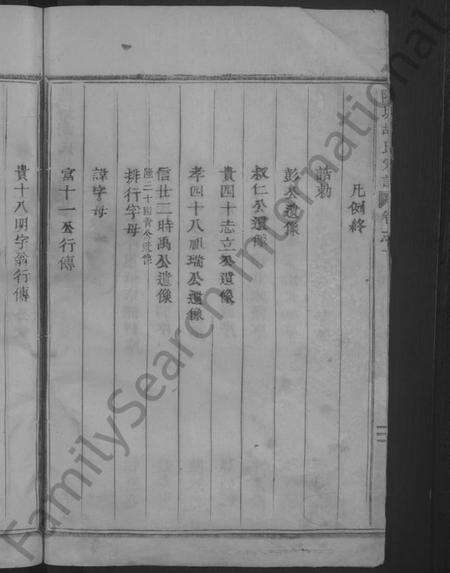 凡例終
誥勅
彭公遺像
叔仁公遺像
貴四十志立公遺像
孝四十八順瑞公遺像
信廿二時禹公遺像
排行字母
諱字母
宮十一公行傳
貴十八明字翁行傳
FamilySearch International